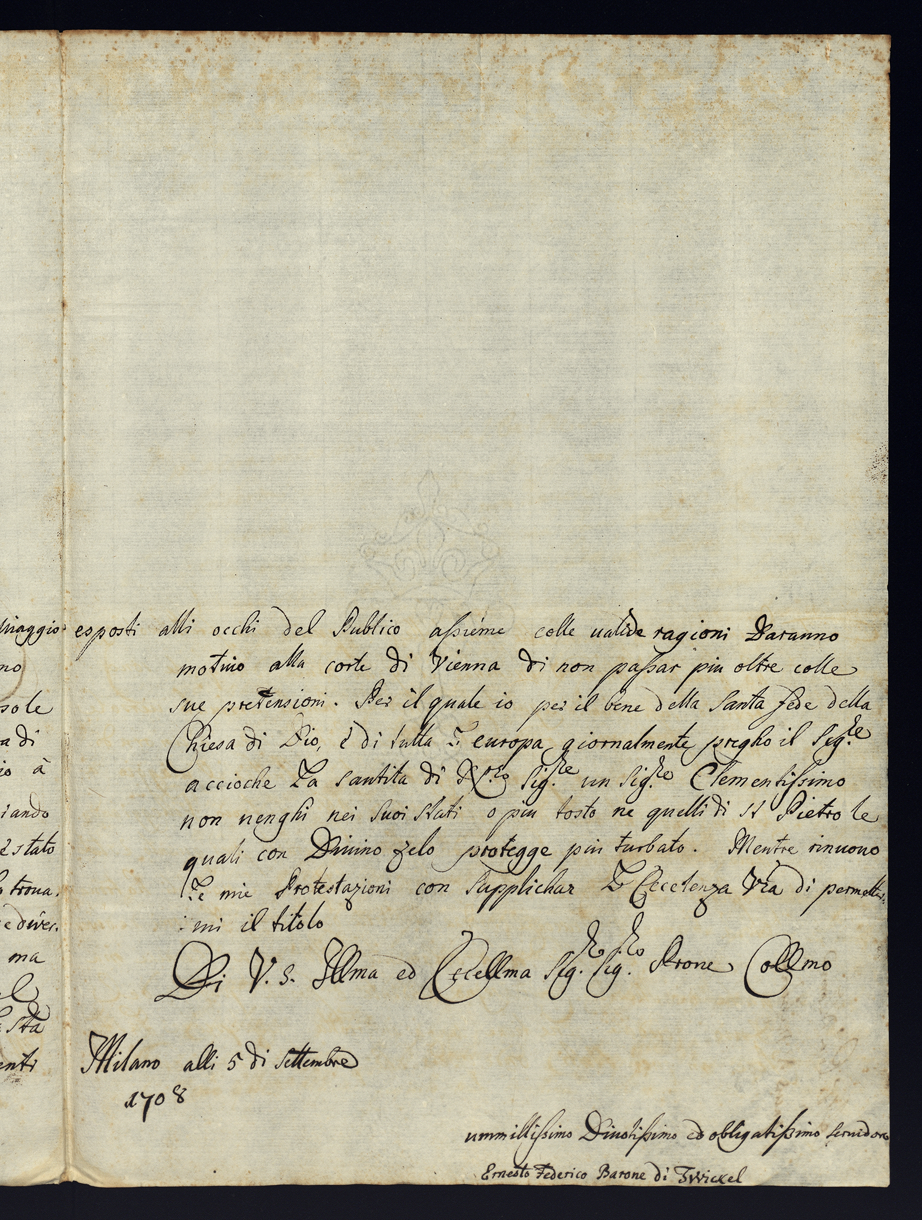 viaggio
no
sole
a di
io à
iando
stato
trova.
e diver.
ma
sta
enti
esposti alli occhi del Publico assieme colle valide ragioni Daranno
motivo alla corte di Vienna di non passar piu oltre colle
sue pretensioni. Per il quale io per il bene della Santa fede della
Chiesa di Dio, è di tutta L'europa giornalmente pregho il Sig.re
accioche La santita di Sig.re un Sig.re Clementissimo
non venghi nei suoi stati o piu tosto ne quelli di St Pietro le
quali con Divino zelo protegge piu turbato. Mentre rinuovo
Le mie Protestazioni con supplichar L'Eccelenza Vra di permetter:
:mi il titolo
Di V. S. Illma ed Eccellma Sig.re Sig.re Prone Collmo
Milano alli 5 di Settembre
1708
ummillissimo Divotissimo ed obligatissimo servidore
Ernesto Federico Barone di Twickel